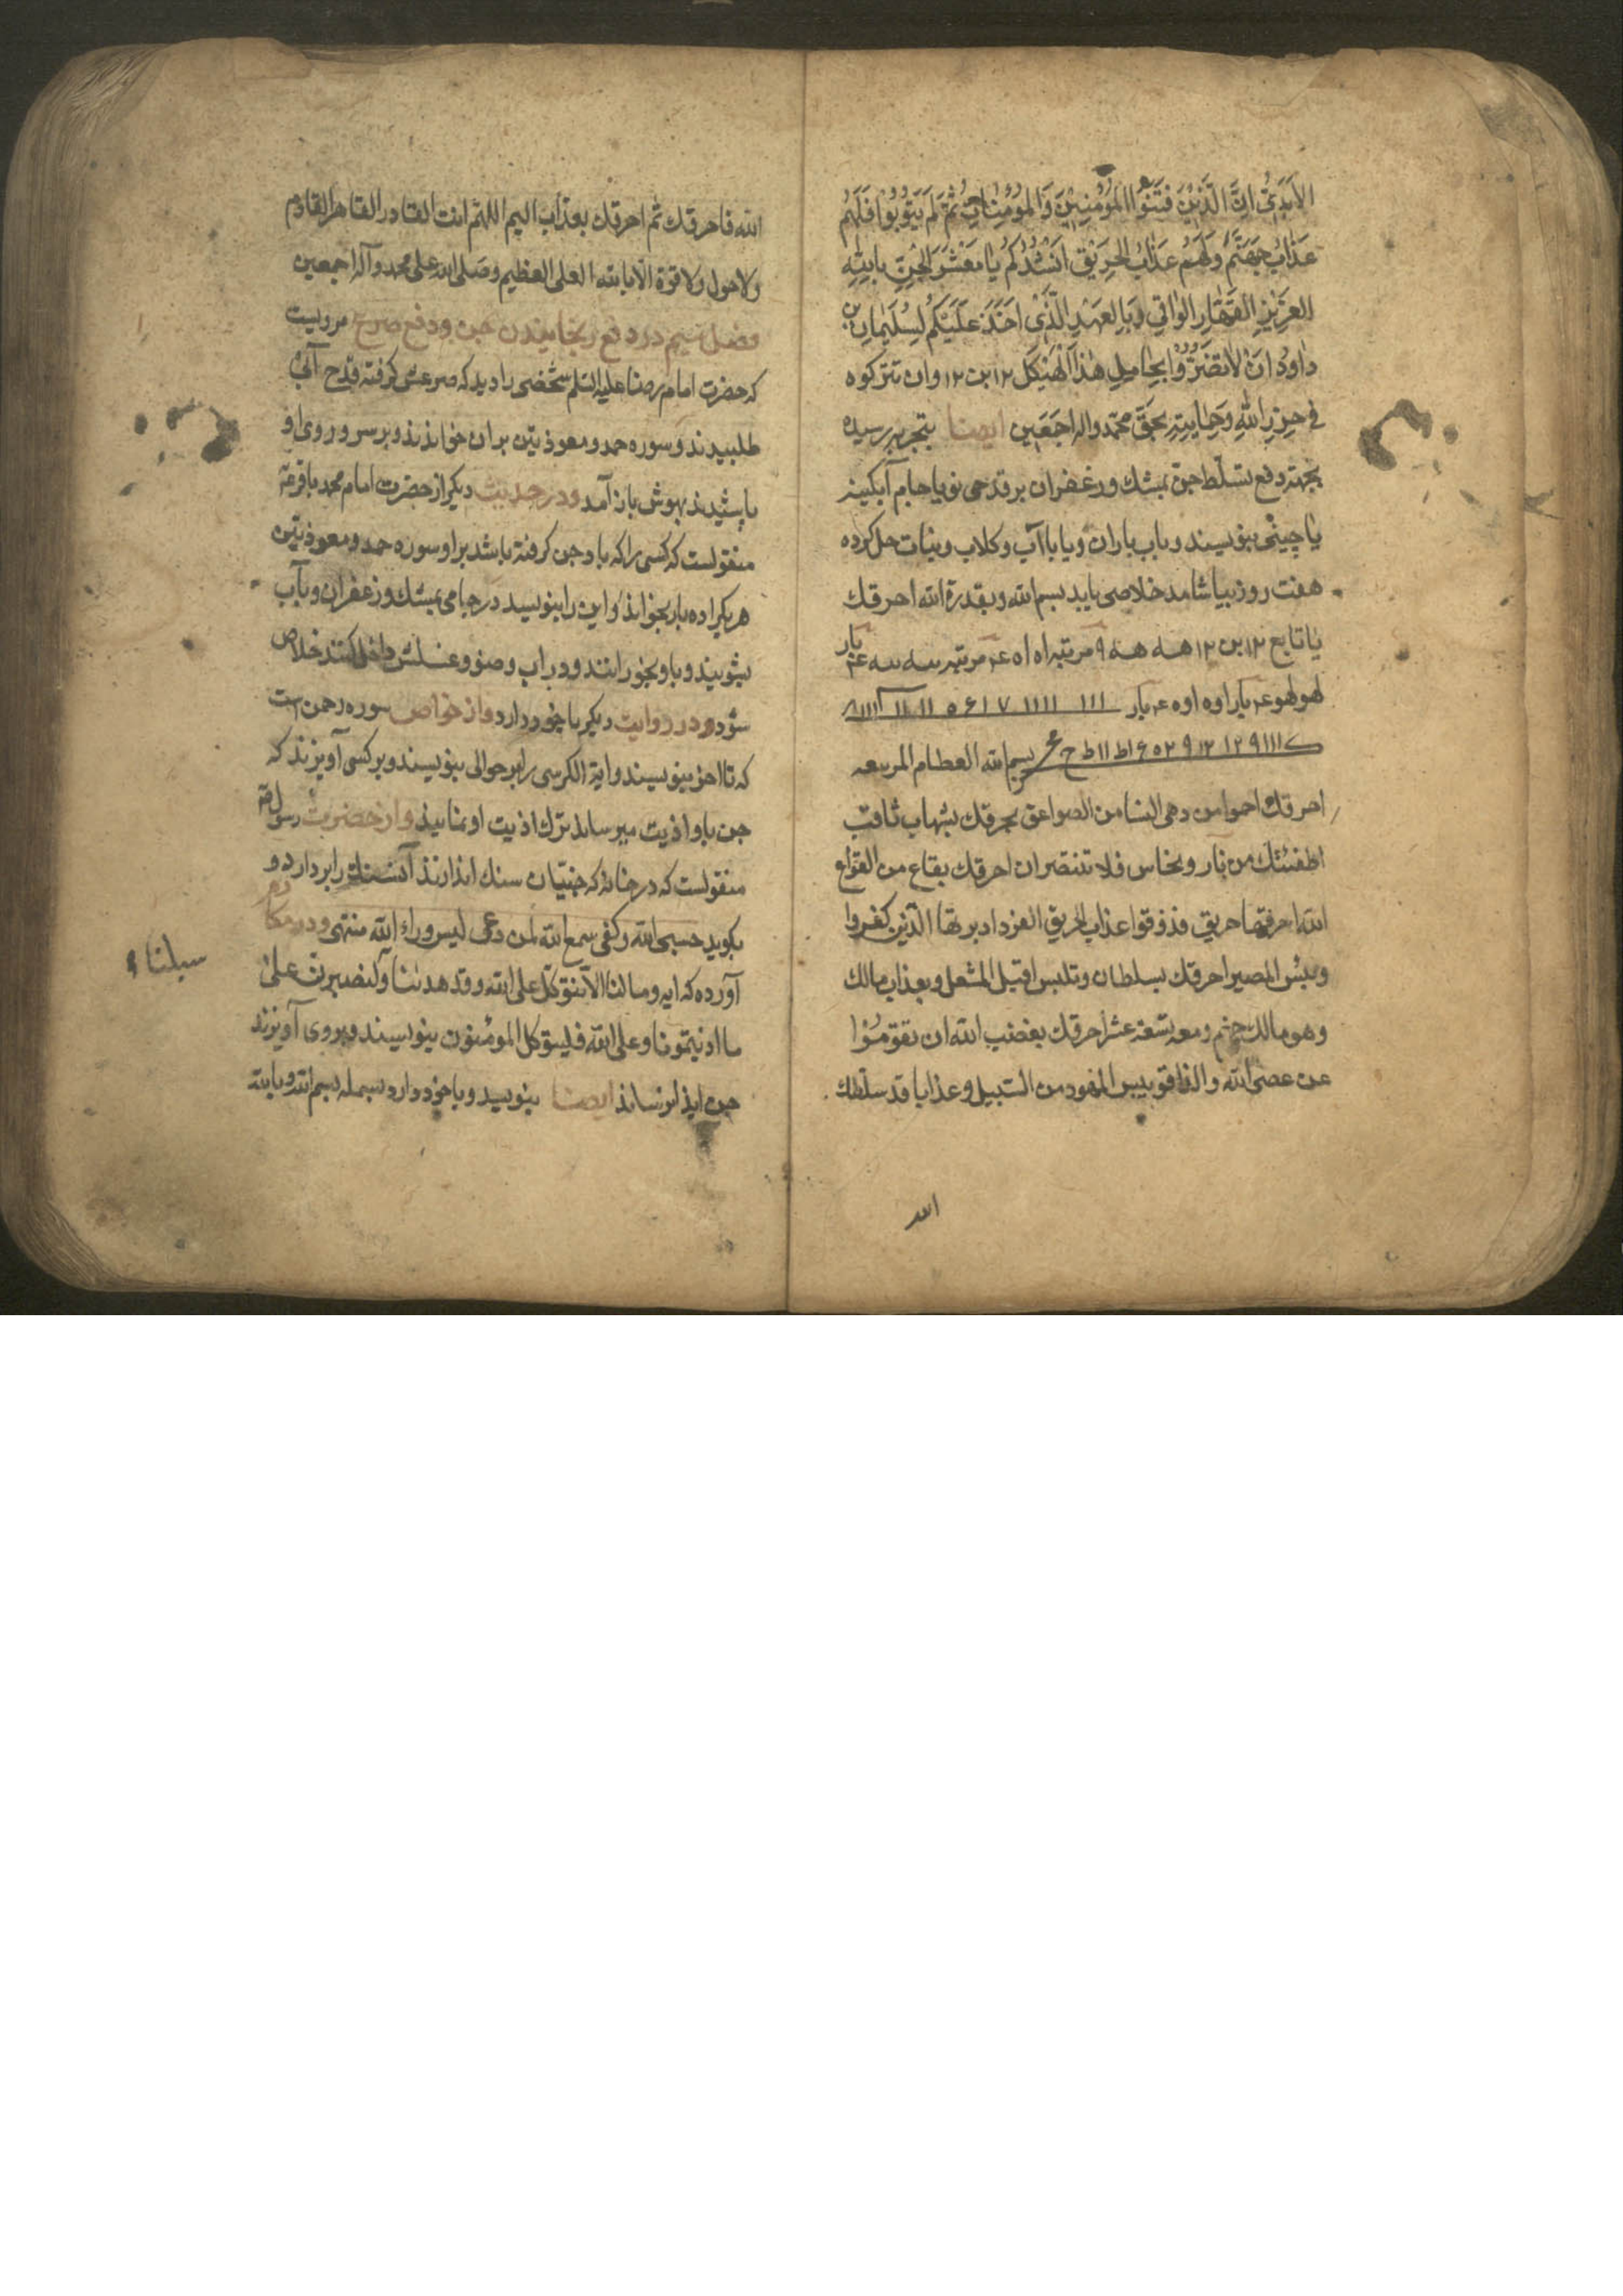 الاَبَدِىِّ اِنَّ الَّذِيْنَ فَتَنُوا الْمُؤْمِنِيْنَ وَالْمُؤْمِنَاتِ ثُمَّ لَمْ يَتُوبُوْا فَلَهُمْ
عَذَابُ جَهَنَّمَ وَلَهُمْ عَذَابُ الْحَرِيْقِ اَنْشُدُكُمْ يَا مَعْشَرَ الْجِنِّ بِاللهِ
الْعَزِيْزِ الْقَهَّارِ الْوَاقِي وَبِالْعَهْدِ الَّذِىْ اَخَذَ عَلَيْكُمْ لِسُلَيْمَانِ بن
دَاوُدَ اَنْ لَا تَضُرُّوْا بِحَامِلِ هٰذَا الْهَيْكَلِ ١٢ بن ١٢ وان تتركوه
فى حِرْزِ اللهِ وَحِمَايَتِهِ بِحَقِّ محمّد واله اَجْمَعِين ايضا بتجربه رسيده
بجهة دفع تسلّط جن بمشك و زعفران بر قدحى نو يا جام آبكينه
يا چينى بنويسند و باب باران و يا با آب و كلاب و نبات حل كرده
هفت روز بياشامد خلاصى يابد بسم الله وبقدرة الله احرقك
يا تابع ١٢ بن ١٢ هه هه ٩ مرتبه اه اه ع مرتبه سه سه ع بار
لهو لهو ع بار اوه اوه ع بار ١١١ ١١١١ ٧ ١ ۶ ٥ ١١ ١١
بسم الله العظام المربعه
احرقك احموا من دهى السنا من الصواعق بحرقك بشهاب ثاقب
اطفئتك من نار ونحاس فلا تنتصران احرقك بقاع من القواع
الله احرقتها حريق فذوقوا عذاب الحريق الذين كفروا
وبئس المصير احرقك بسلطان وتلبس اقتيل المشعل وبعذاب مالك
وهو مالك جهنم ومعه تسعة عشر احرقك بغضب الله ان تقوموا
عن عصى الله من السبيل وعذابا قد سلّطك
الله
الله فاحرقك ثم احرقك بعذاب اليم اللهمّ انت القادر القاهر القادم
ولا حول ولا قوة الا بالله العلى العظيم وصلى الله على محمد وآله اجمعين
فصل سيم در دفع رنجانيدن جن ودفع صرع مرويست
كه حضرت امام رضا عليه السلم شخصى را ديد كه صرعش كرفته قدح آبى
طلبيدند و سوره حمد و معوذتين بران خواندند و بر سر و روى او
پاشيدند بهوش باز آمد ودر حديث ديكر از حضرت امام محمد باقر ع
منقولست كه كسى را كه با وجن كرفته باشد براو سوره حمد و معوذتين
هر يكرا ده بار بخواند و اين را بنويسد در جامى بمشك و زعفران وبآب
بشويند و باو بخورانند ودر اب وضو وغسلش داخل كنند خلاص
شود ودر روايت ديكر با خود دارد واز خواص سوره رحمن است
كه تا اخر بنويسند واية الكرسى را بر حوالى بنويسند وبر كسى آويزند كه
جن باو اذيت ميرساند ترك اذيت او نمايند واز حضرت رسول
منقولست كه در خانه كه جنيان سنك اندازند آن سنك را بردارد و
بكويد حسبى الله وكفى سمع الله لمن دعى ليس وراء الله منتهى ودر مكارم
آورده كه ايه وما لنا الا نتوكل على الله وقد هدينا ولنصبرن على
ما اذيتمونا وعلى الله فليتوكل المؤمنون بنويسند وبروى آويزند
جن ايذا نرساند ايضا بنويسد وبا خود دارد بسمله بسم الله وبالله
سبلنا